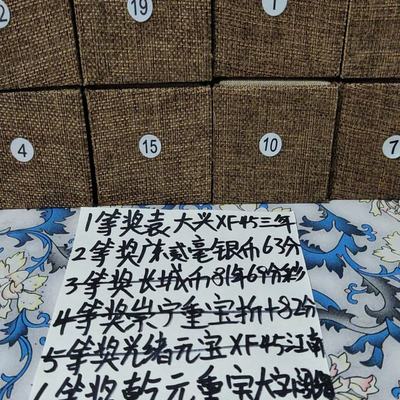 2 19 1
4 15 10 7
1等奖袁大头XF45三年
2等奖广东贰毫银币63分
3等奖长城币81年69分彩
4等奖崇宁重宝折十82分
5等奖光绪元宝XF45江南
等奖乾元重宝大字